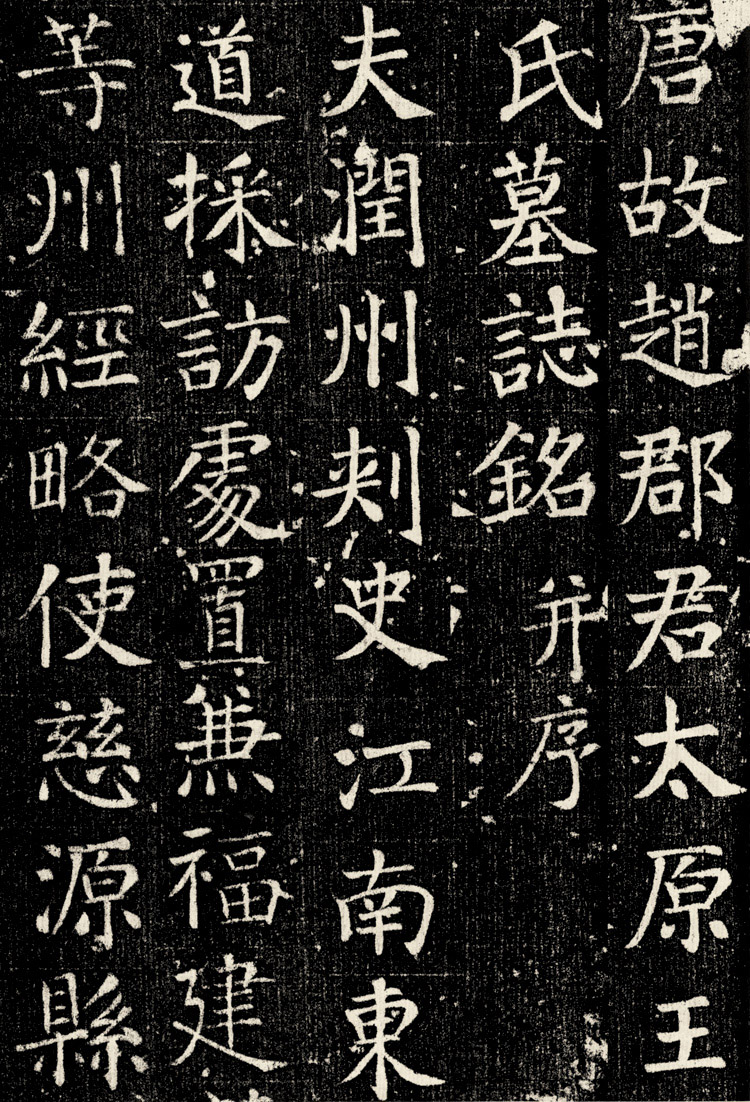 唐故趙郡君太原王
氏墓誌銘并序
夫潤州刾史江南東
道採訪處置兼福建
等州經略使慈源縣